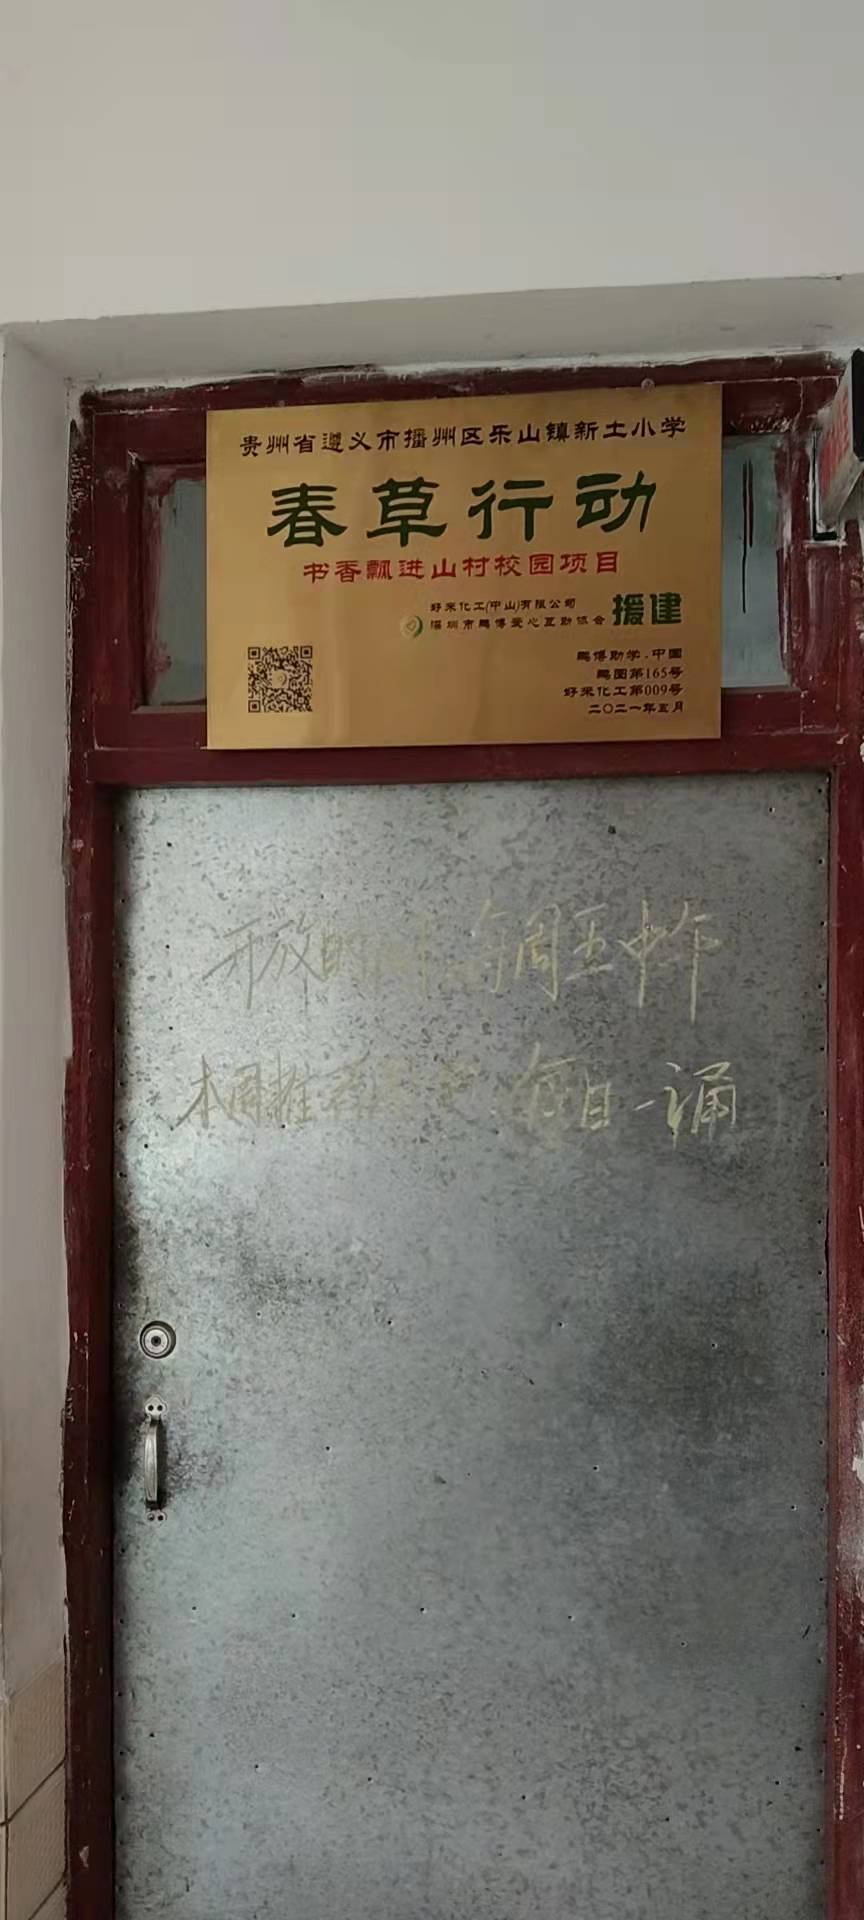 贵州省遵义市播州区乐山镇新土小学
春草行动
书香飘进山村校园项目
好来化工(中山)有限公司
深圳市鹏博爱心互助协会
援建
鹏博助学·中国
鹏图第165号
好来化工第009号
二〇二一年五月
开放时间:每周五中午
本周推荐 每日一诵